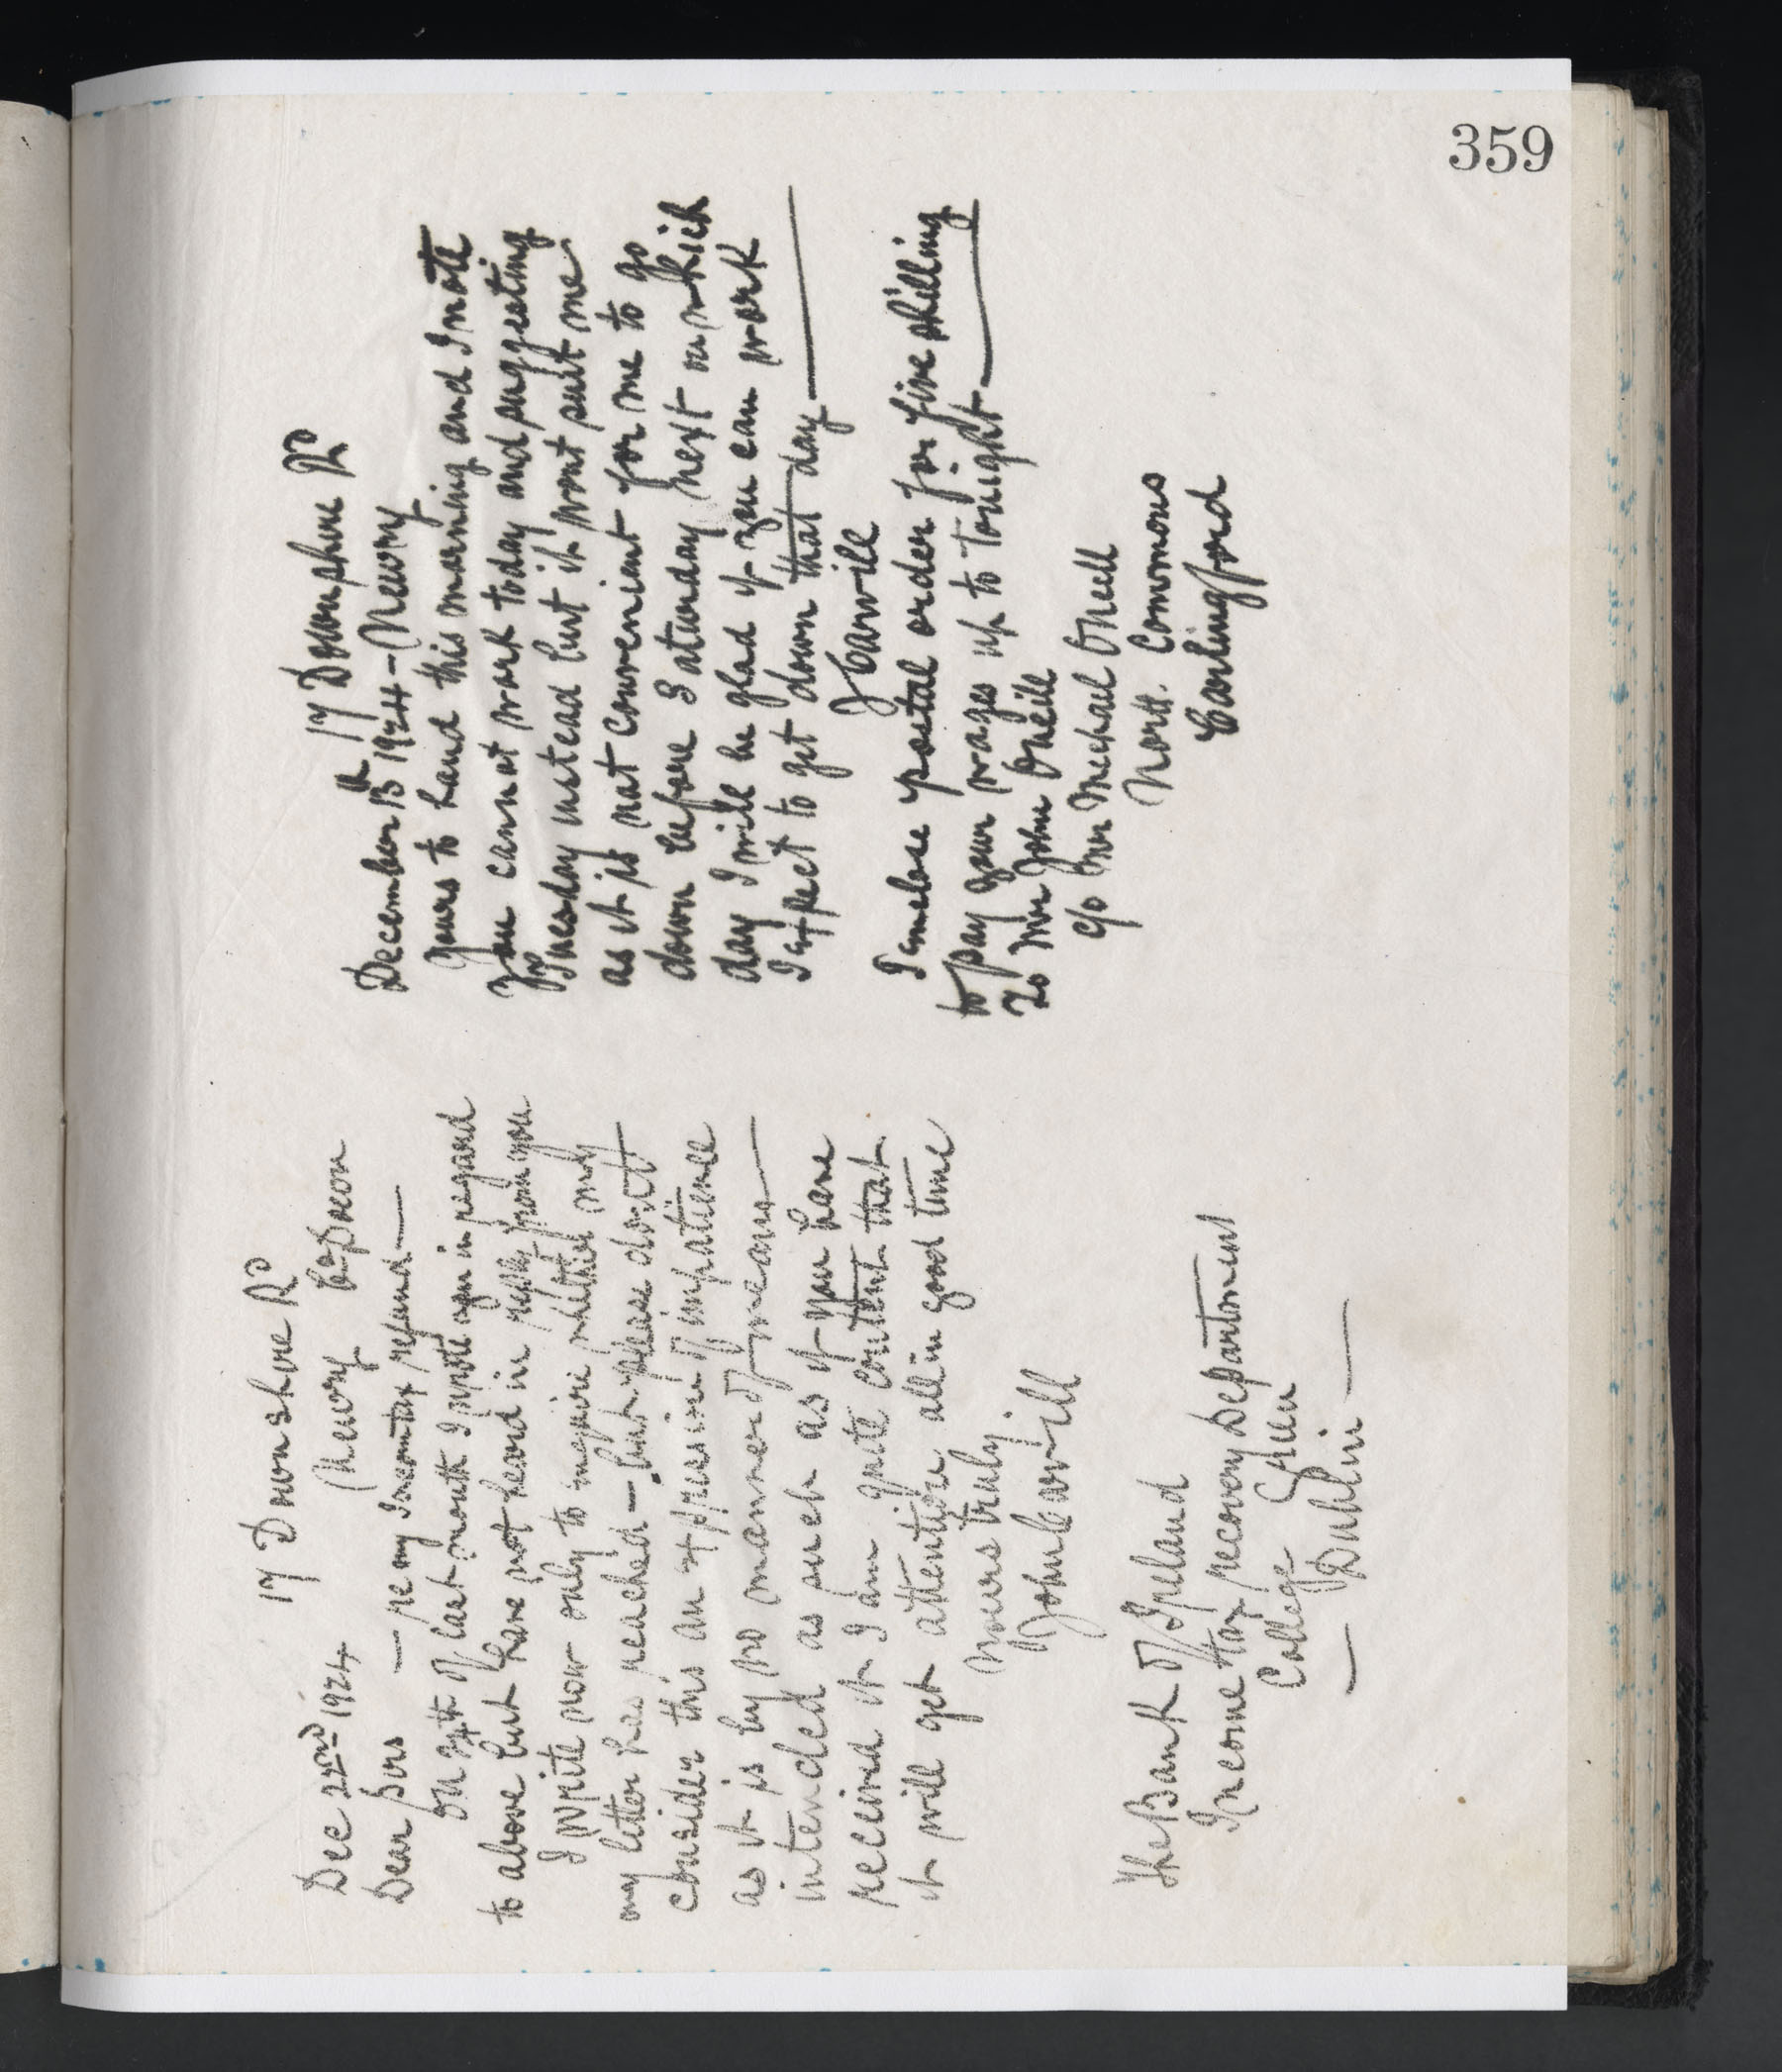 359
17 Downshire Rd
Dec 22nd 1924 Newry Co Down
Dear Sirs — re my Income tax refund —
On 24th of last month I wrote again in regard
to above but have not heard in reply from you
I write now only to inquire whether my
my letter has reached — but please don't
consider this an expression of impatience
as it is by no manner of means —
intended as such as if you have
received it I am quite content that
it will get attention all in good time
Yours truly
John Carvill
The Bank of Ireland
Income tax recovery Department
College Green
— Dublin —
17 Downshire Rd
December 13th 1924 — Newry
Yours to hand this morning and I note
you cannot work today and suggesting
Tuesday instead but it wont suit me
as it is not convenient for me to go
down before Saturday next on which
day I will be glad if you can work
I expect to get down that day —
J Carvill
I enclose postal order for five shilling
to pay your wages up to tonight —
To Mr John ONeill
c/o Mrs Michael ONeill
North Commons
Carlingford